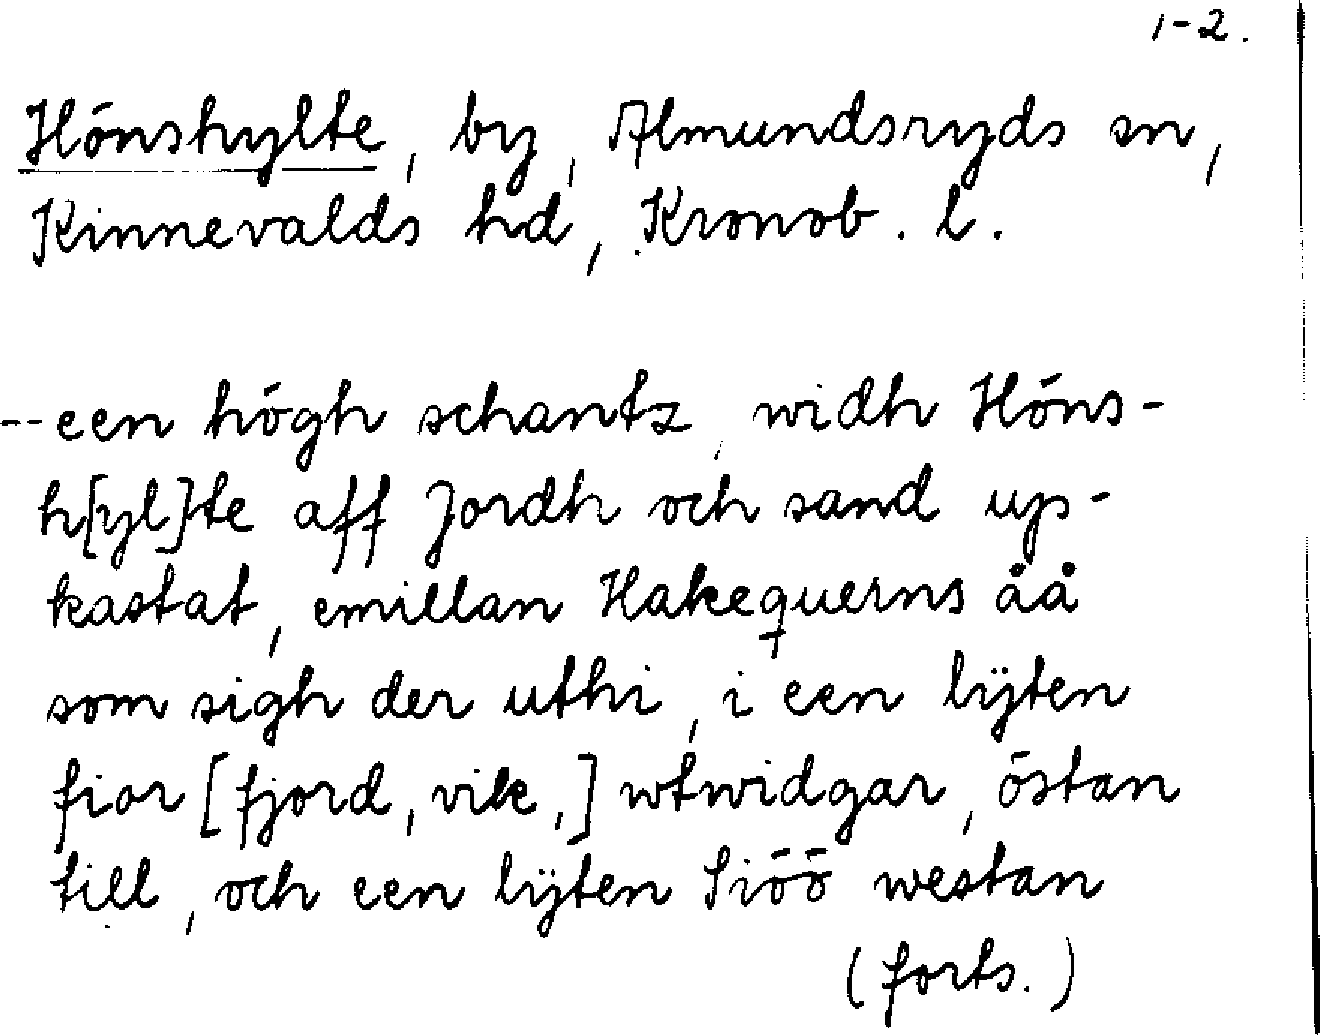 1-2.
Hönshylte, by, Almundsryds sn,
Kinnevalds hd, Kronob. l.
--een högh schantz, widh Höns-
h[yl]te aff Jordh och sand up-
kastat, emillan Hakequerns åå
som sigh der uthi, i een lijten
fior [fjord, vik,] wtwidgar, östan
till, och een lijten Siöö westan
(forts.)